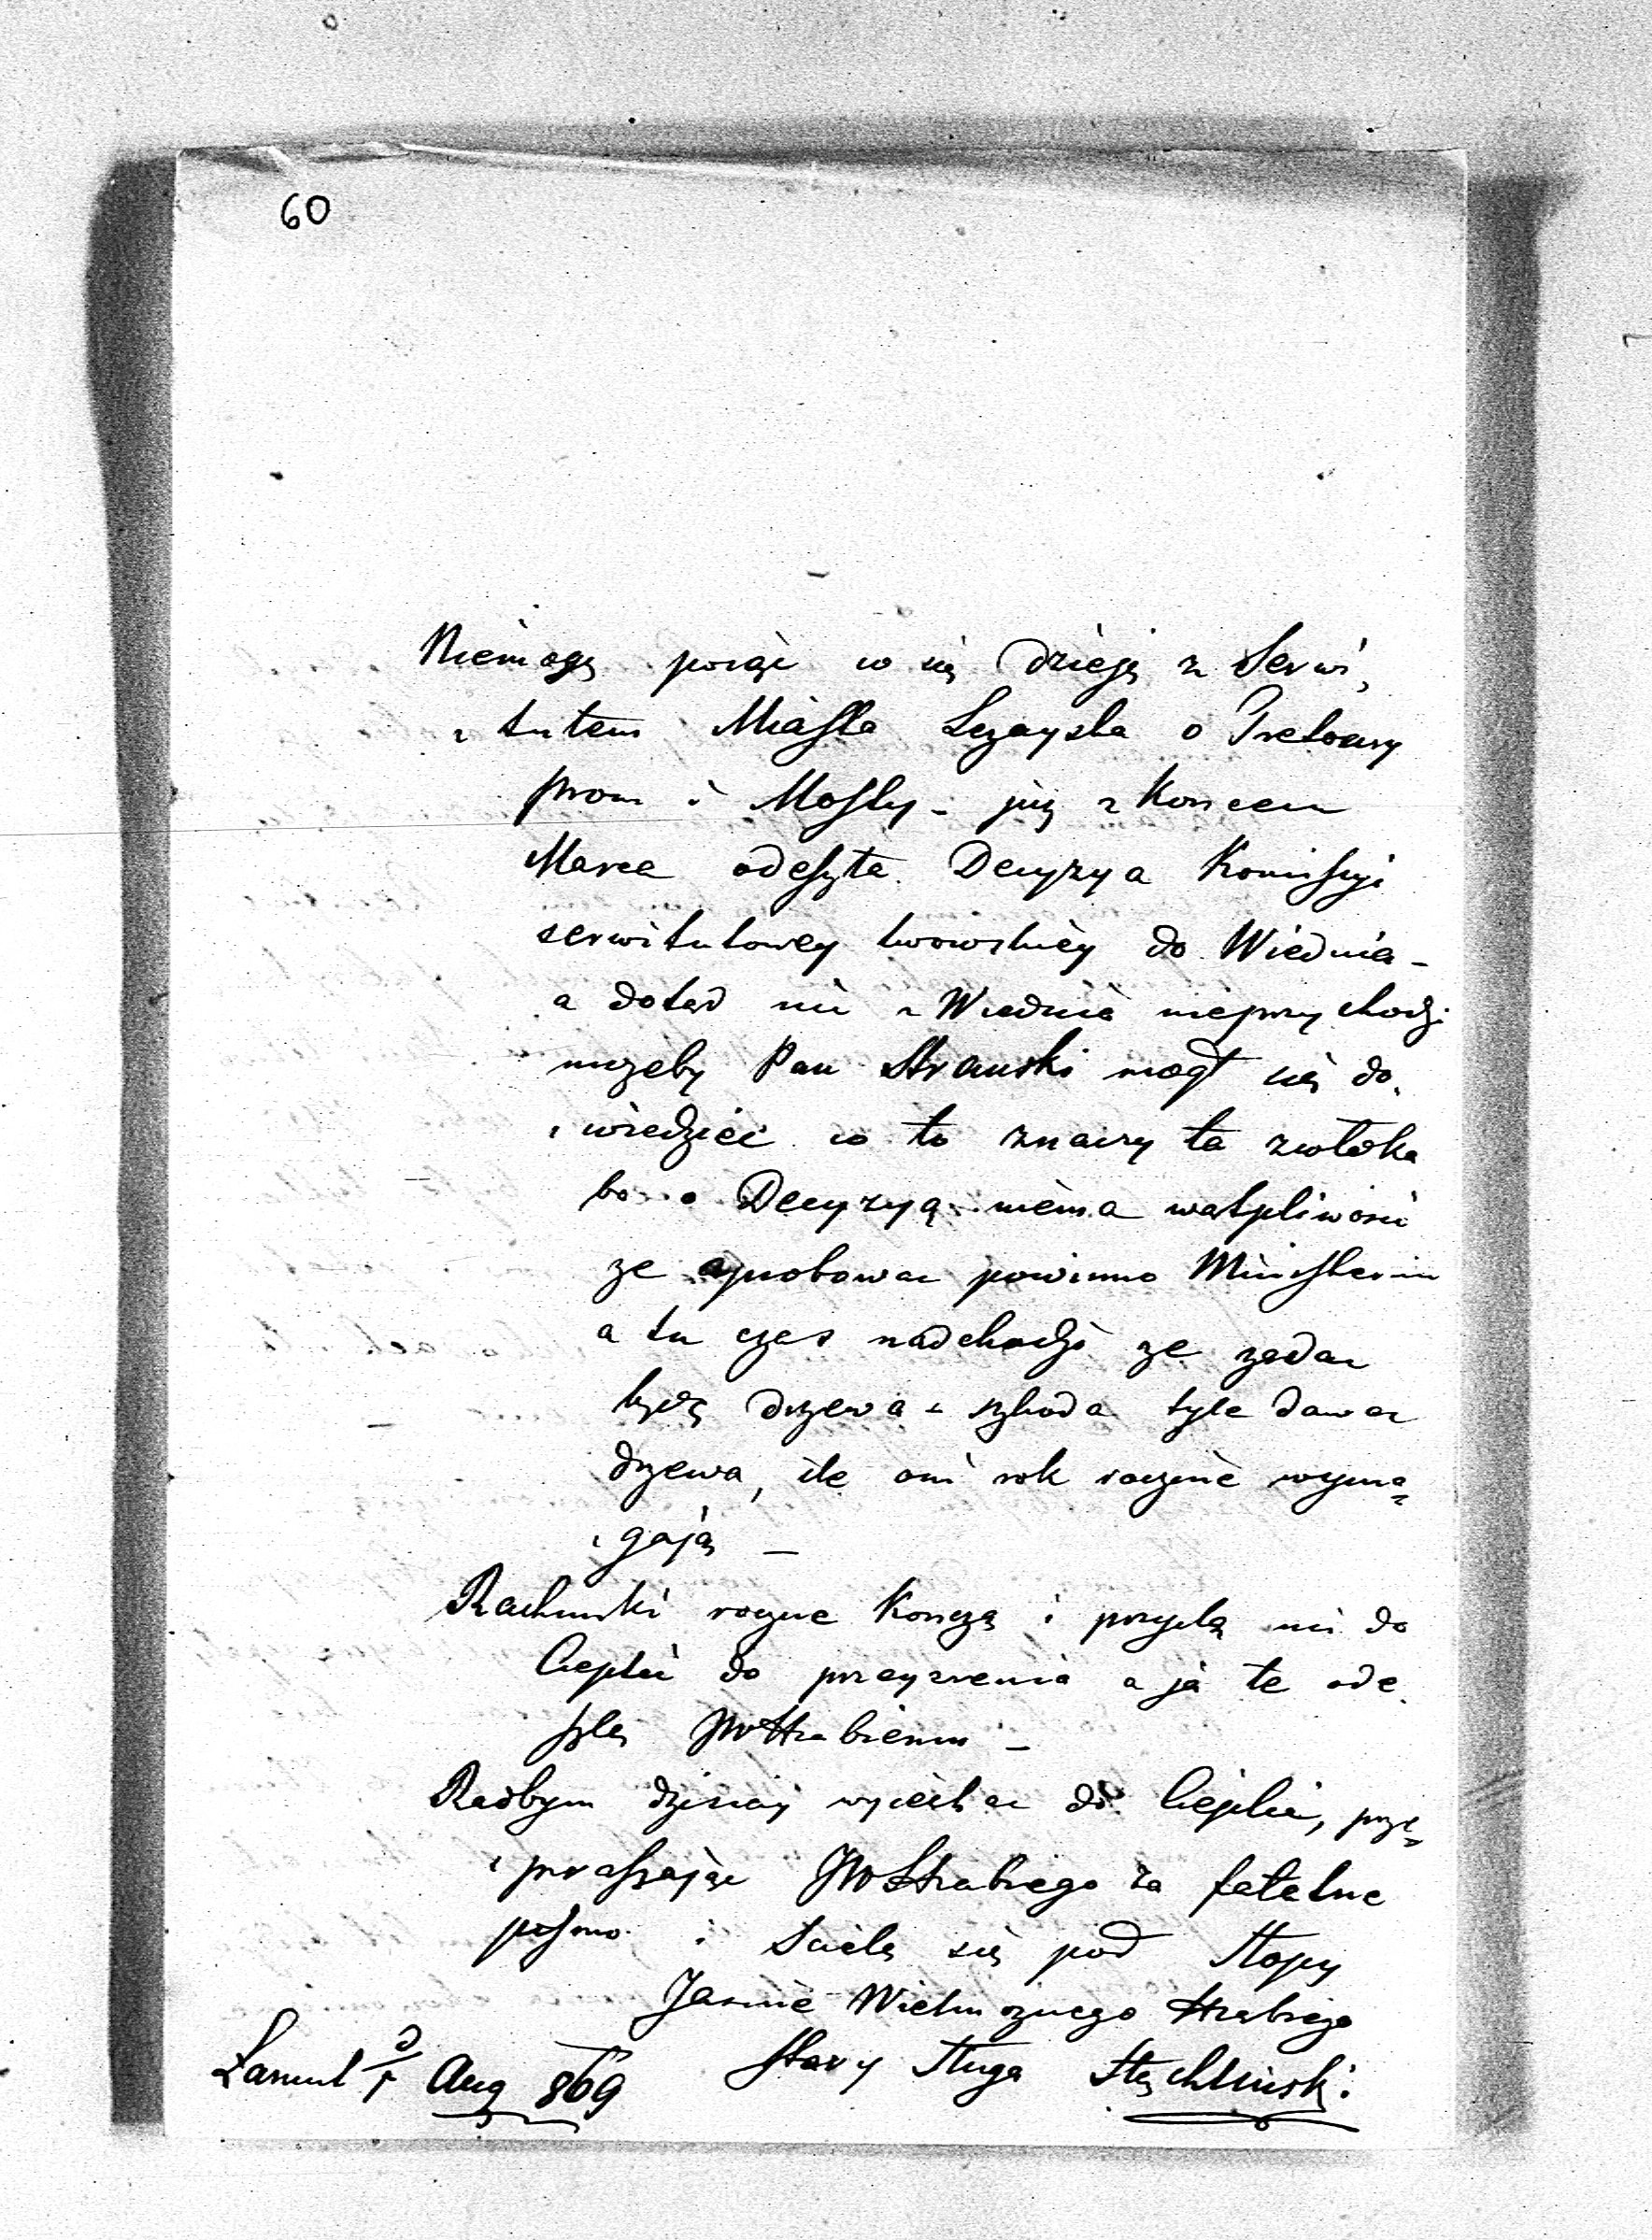 60
Niemogę pojąć co się dzieję z Serwi,
tutem Miasta Leżayska o Pretoary
prom i Mosty - już z Koncem
Marca odeszła Decyzya Komissyi
serwitutowey lwowskiéy do Wiednia -
a dotąd nic z Wiednia nieprzychodzi
mozeby Pan Strauski mogł się do,
wiedziéć co to znaczy ta zwłoka
bo o Decyzyą niéma wątpliwosci
ze aprobowac powinno Ministerium
a tu czas nadchodzi ze ządac
będą drzewa - szkoda tyle dawac
drzewa, ile oni rok rocznie wyma=
gają -
Rachunki roczne Konczą i przyslą mi do
Cieplic do przeyzrenia a ja te ode
szlę JWHrabiemu -
Radbym dzisiaj wyiechac do Cieplic, prze=
praszając JWHrabiego za fatalne
pismo i Scielę się pod Stopy
Jasnie Wielmoznego Hrabiego
stary Sługa Stęchlinski.
Łancut Aug 869